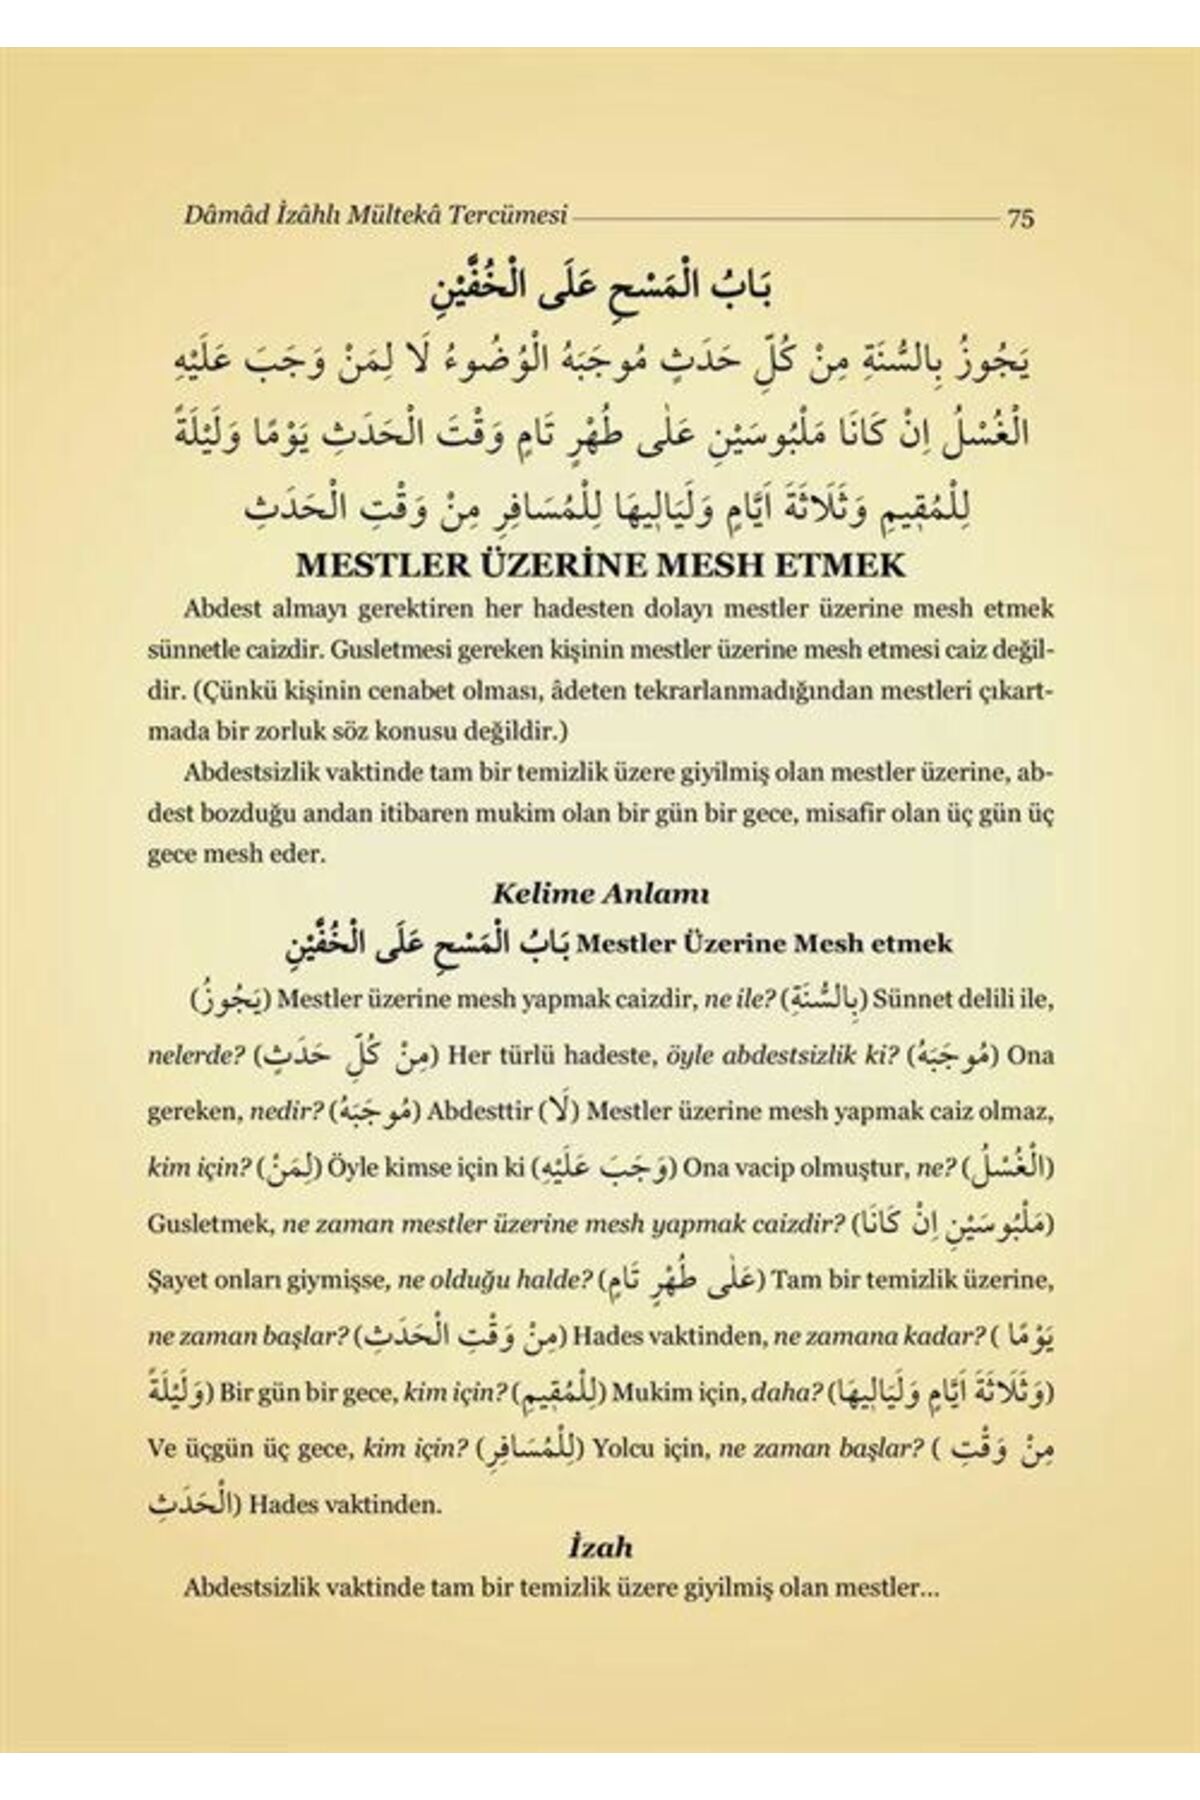 Dâmâd İzâhlı Mültekâ Tercümesi 75
بَابُ الْمَسْحِ عَلَى الْخُفَّيْنِ
يَجُوزُ بِالسُّنَةِ مِنْ كُلِّ حَدَثٍ مُوجَبَهُ الْوُضُوءُ لَا لِمَنْ وَجَبَ عَلَيْهِ
الْغُسْلُ اِنْ كَانَا مَلْبُوسَيْنِ عَلٰى طُهْرٍ تَامٍ وَقْتَ الْحَدَثِ يَوْمًا وَلَيْلَةً
لِلْمُقِيمِ وَثَلَاثَةَ اَيَّامٍ وَلَيَالِيهَا لِلْمُسَافِرِ مِنْ وَقْتِ الْحَدَثِ
MESTLER ÜZERİNE MESH ETMEK
Abdest almayı gerektiren her hadesten dolayı mestler üzerine mesh etmek
sünnetle caizdir. Gusletmesi gereken kişinin mestler üzerine mesh etmesi caiz değil-
dir. (Çünkü kişinin cenabet olması, âdeten tekrarlanmadığından mestleri çıkart-
mada bir zorluk söz konusu değildir.)
Abdestsizlik vaktinde tam bir temizlik üzere giyilmiş olan mestler üzerine, ab-
dest bozduğu andan itibaren mukim olan bir gün bir gece, misafir olan üç gün üç
gece mesh eder.
Kelime Anlamı
بَابُ الْمَسْحِ عَلَى الْخُفَّيْنِ Mestler Üzerine Mesh etmek
(يَجُوزُ) Mestler üzerine mesh yapmak caizdir, ne ile? (بِالسُّنَةِ) Sünnet delili ile,
nelerde? (مِنْ كُلِّ حَدَثٍ) Her türlü hadeste, öyle abdestsizlik ki? (مُوجَبَهُ) Ona
gereken, nedir? (مُوجَبَهُ) Abdesttir (لَا) Mestler üzerine mesh yapmak caiz olmaz,
kim için? (لِمَنْ) Öyle kimse için ki (وَجَبَ عَلَيْهِ) Ona vacip olmuştur, ne? (الْغُسْلُ)
Gusletmek, ne zaman mestler üzerine mesh yapmak caizdir? (مَلْبُوسَيْنِ اِنْ كَانَا)
Şayet onları giymişse, ne olduğu halde? (عَلٰى طُهْرٍ تَامٍ) Tam bir temizlik üzerine,
ne zaman başlar? (مِنْ وَقْتِ الْحَدَثِ) Hades vaktinden, ne zamana kadar? ( يَوْمًا
وَلَيْلَةً) Bir gün bir gece, kim için? (لِلْمُقِيمِ) Mukim için, daha? (وَثَلَاثَةَ اَيَّامٍ وَلَيَالِيهَا)
Ve üçgün üç gece, kim için? (لِلْمُسَافِرِ) Yolcu için, ne zaman başlar? ( مِنْ وَقْتِ
الْحَدَثِ) Hades vaktinden.
İzah
Abdestsizlik vaktinde tam bir temizlik üzere giyilmiş olan mestler...